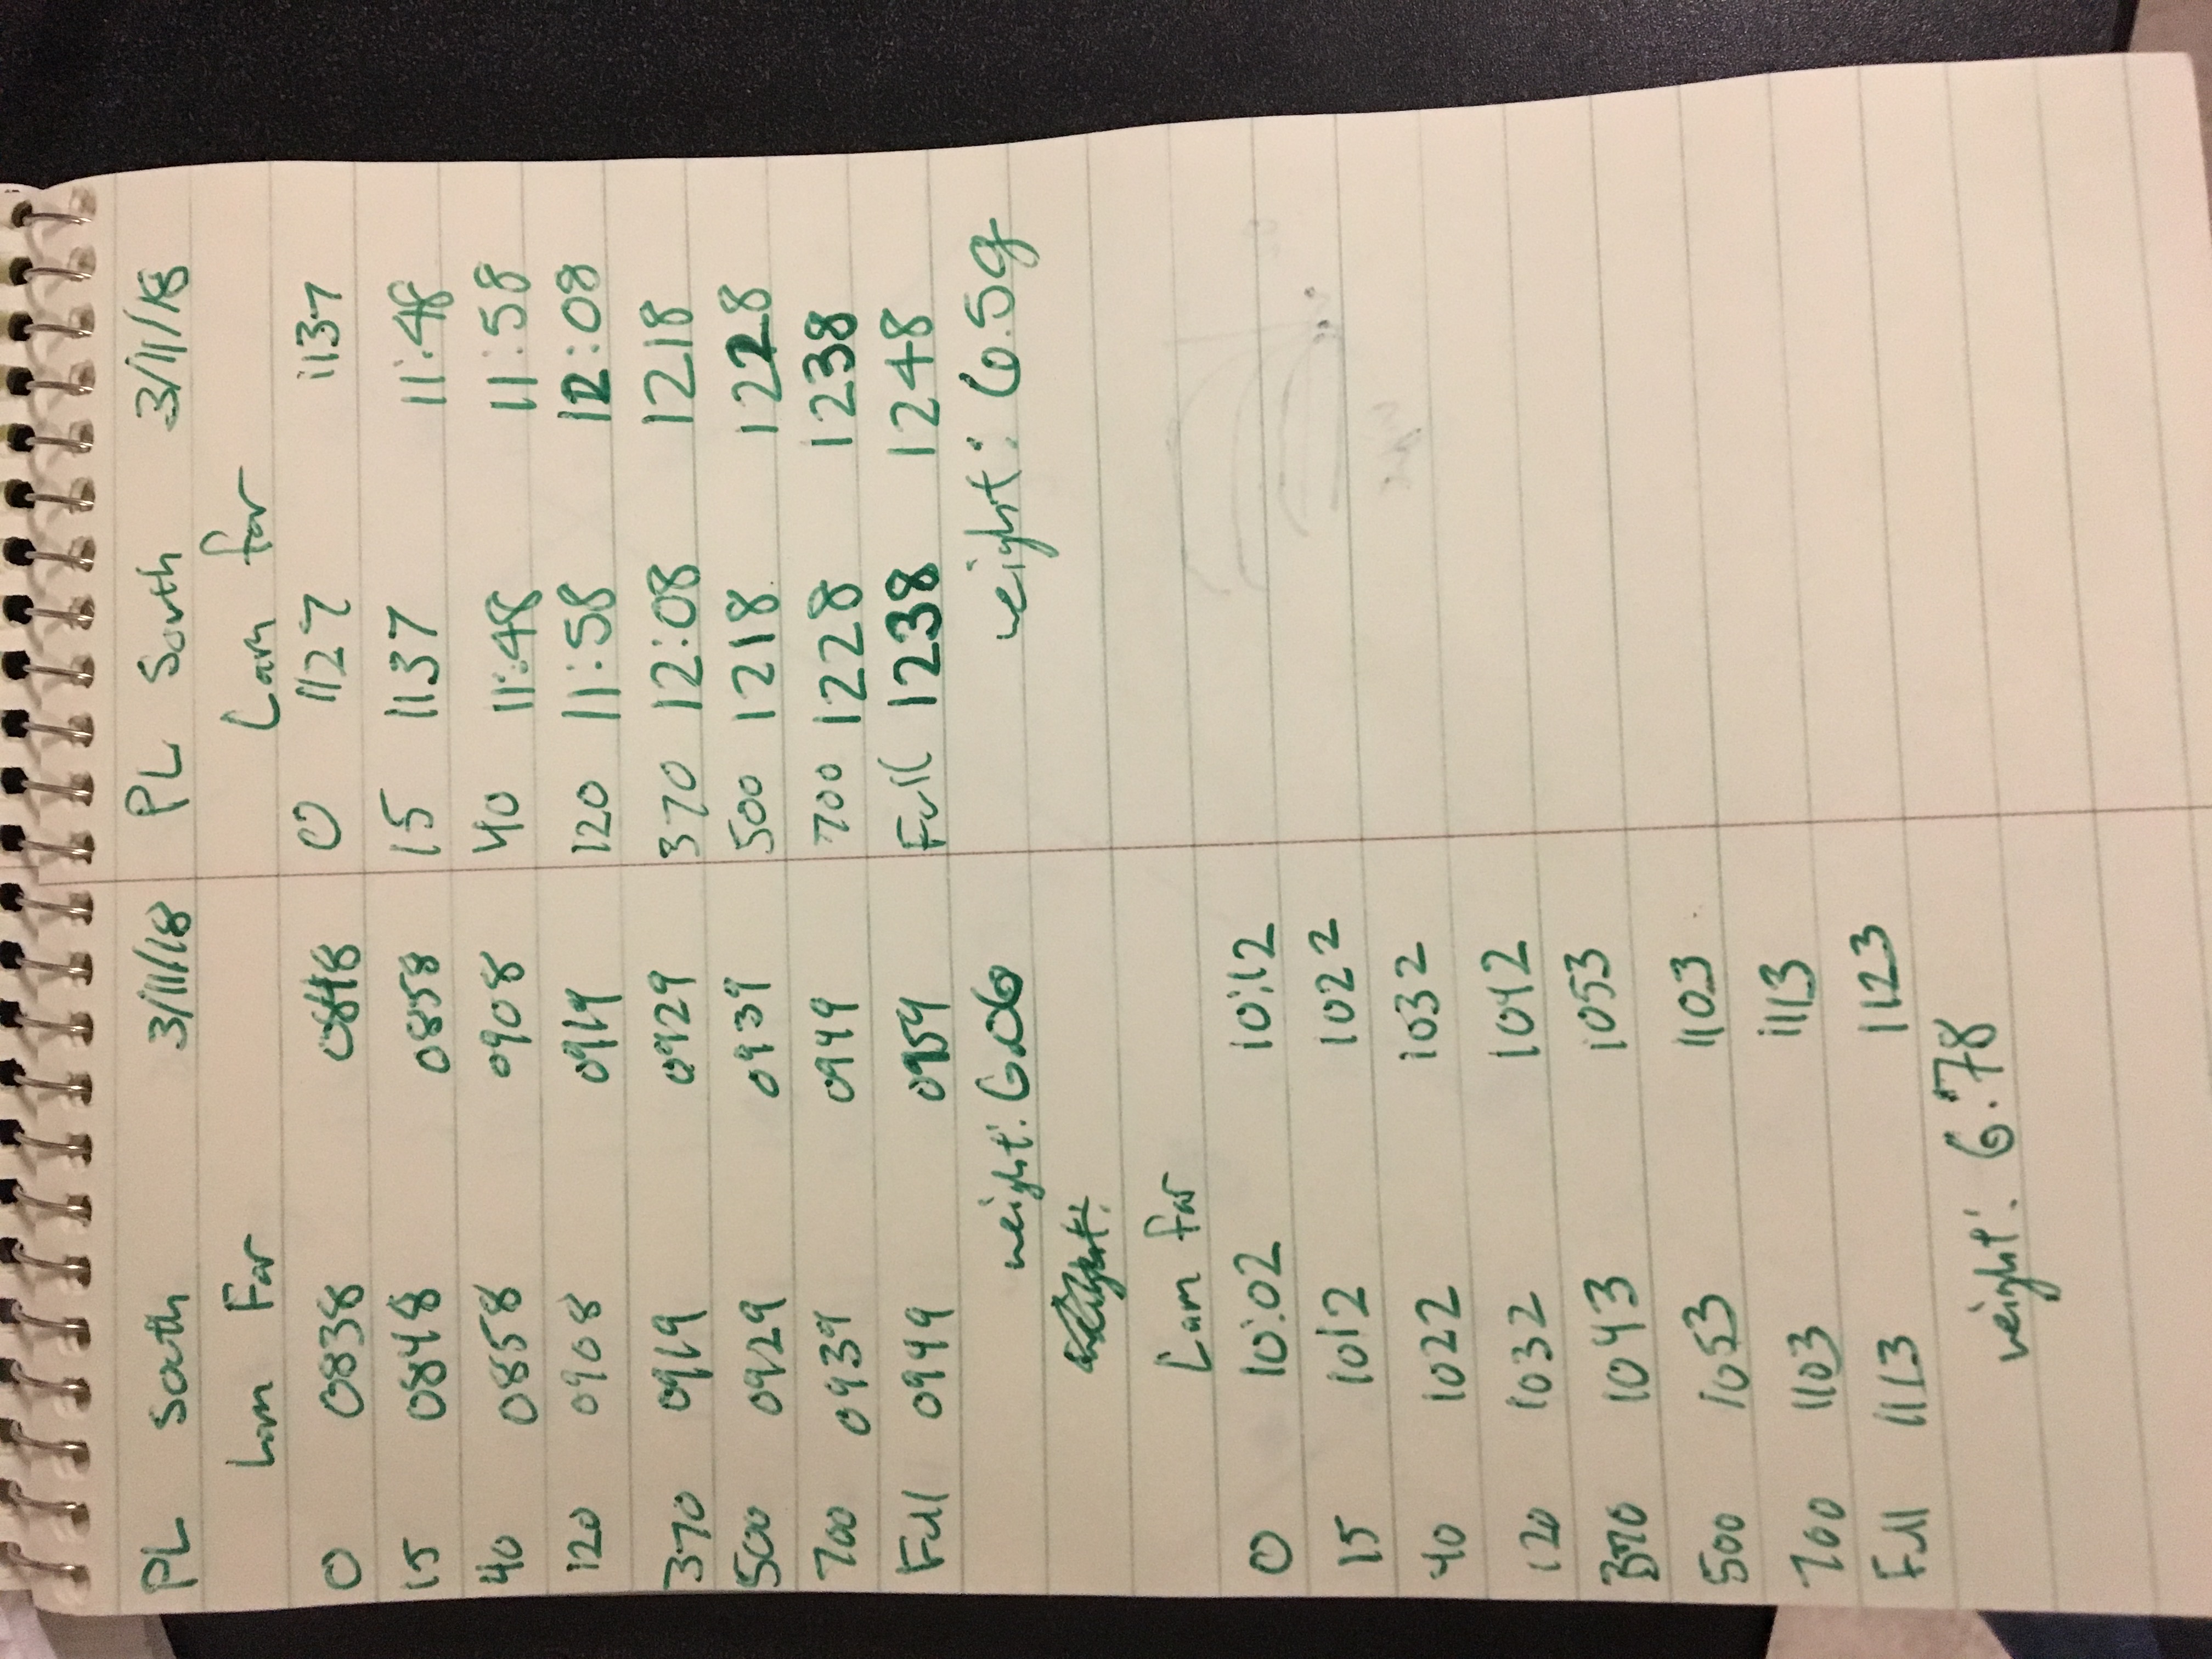 PL South 3/11/18
Lam Far
0 0838 0848
15 0848 0858
40 0858 0908
120 0908 0919
370 0919 0929
500 0929 0939
700 0939 0949
Full 0949 0959
weight: 6.06
weight:
Lam far
0 10:02 10:12
15 1012 1022
40 1022 1032
120 1032 1042
370 1043 1053
500 1053 1103
700 1103 1113
Full 1113 1123
weight: 6.78
PL South 3/11/18
Lam far
0 1127 1137
15 1137 11:48
40 11:48 11:58
120 11:58 12:08
370 12:08 1218
500 1218 1228
700 1228 1238
Full 1238 1248
weight: 6.5g